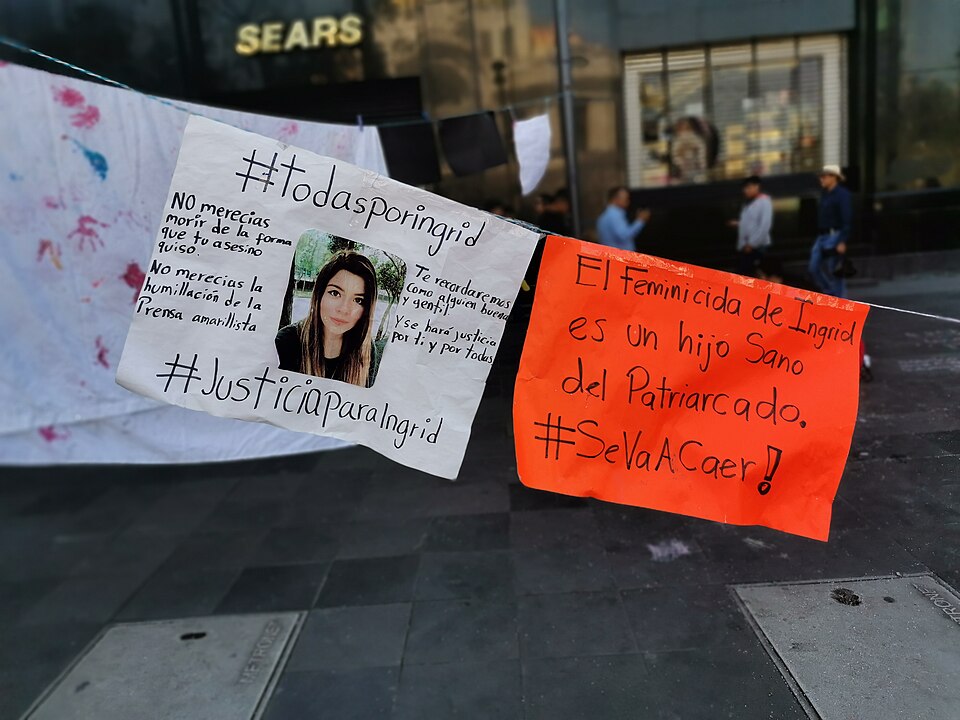 SEARS
#TodasporIngrid
NO merecias
morir de la forma
que tu asesino
quiso.
No merecias la
humillación de la
Prensa amarillista
Te recordaremos
como alguien buena
y gentil
Y se hará justicia
por ti y por todas
#JusticiaParaIngrid
El Feminicida de Ingrid
es un hijo Sano
del Patriarcado.
#SeVaACaer!